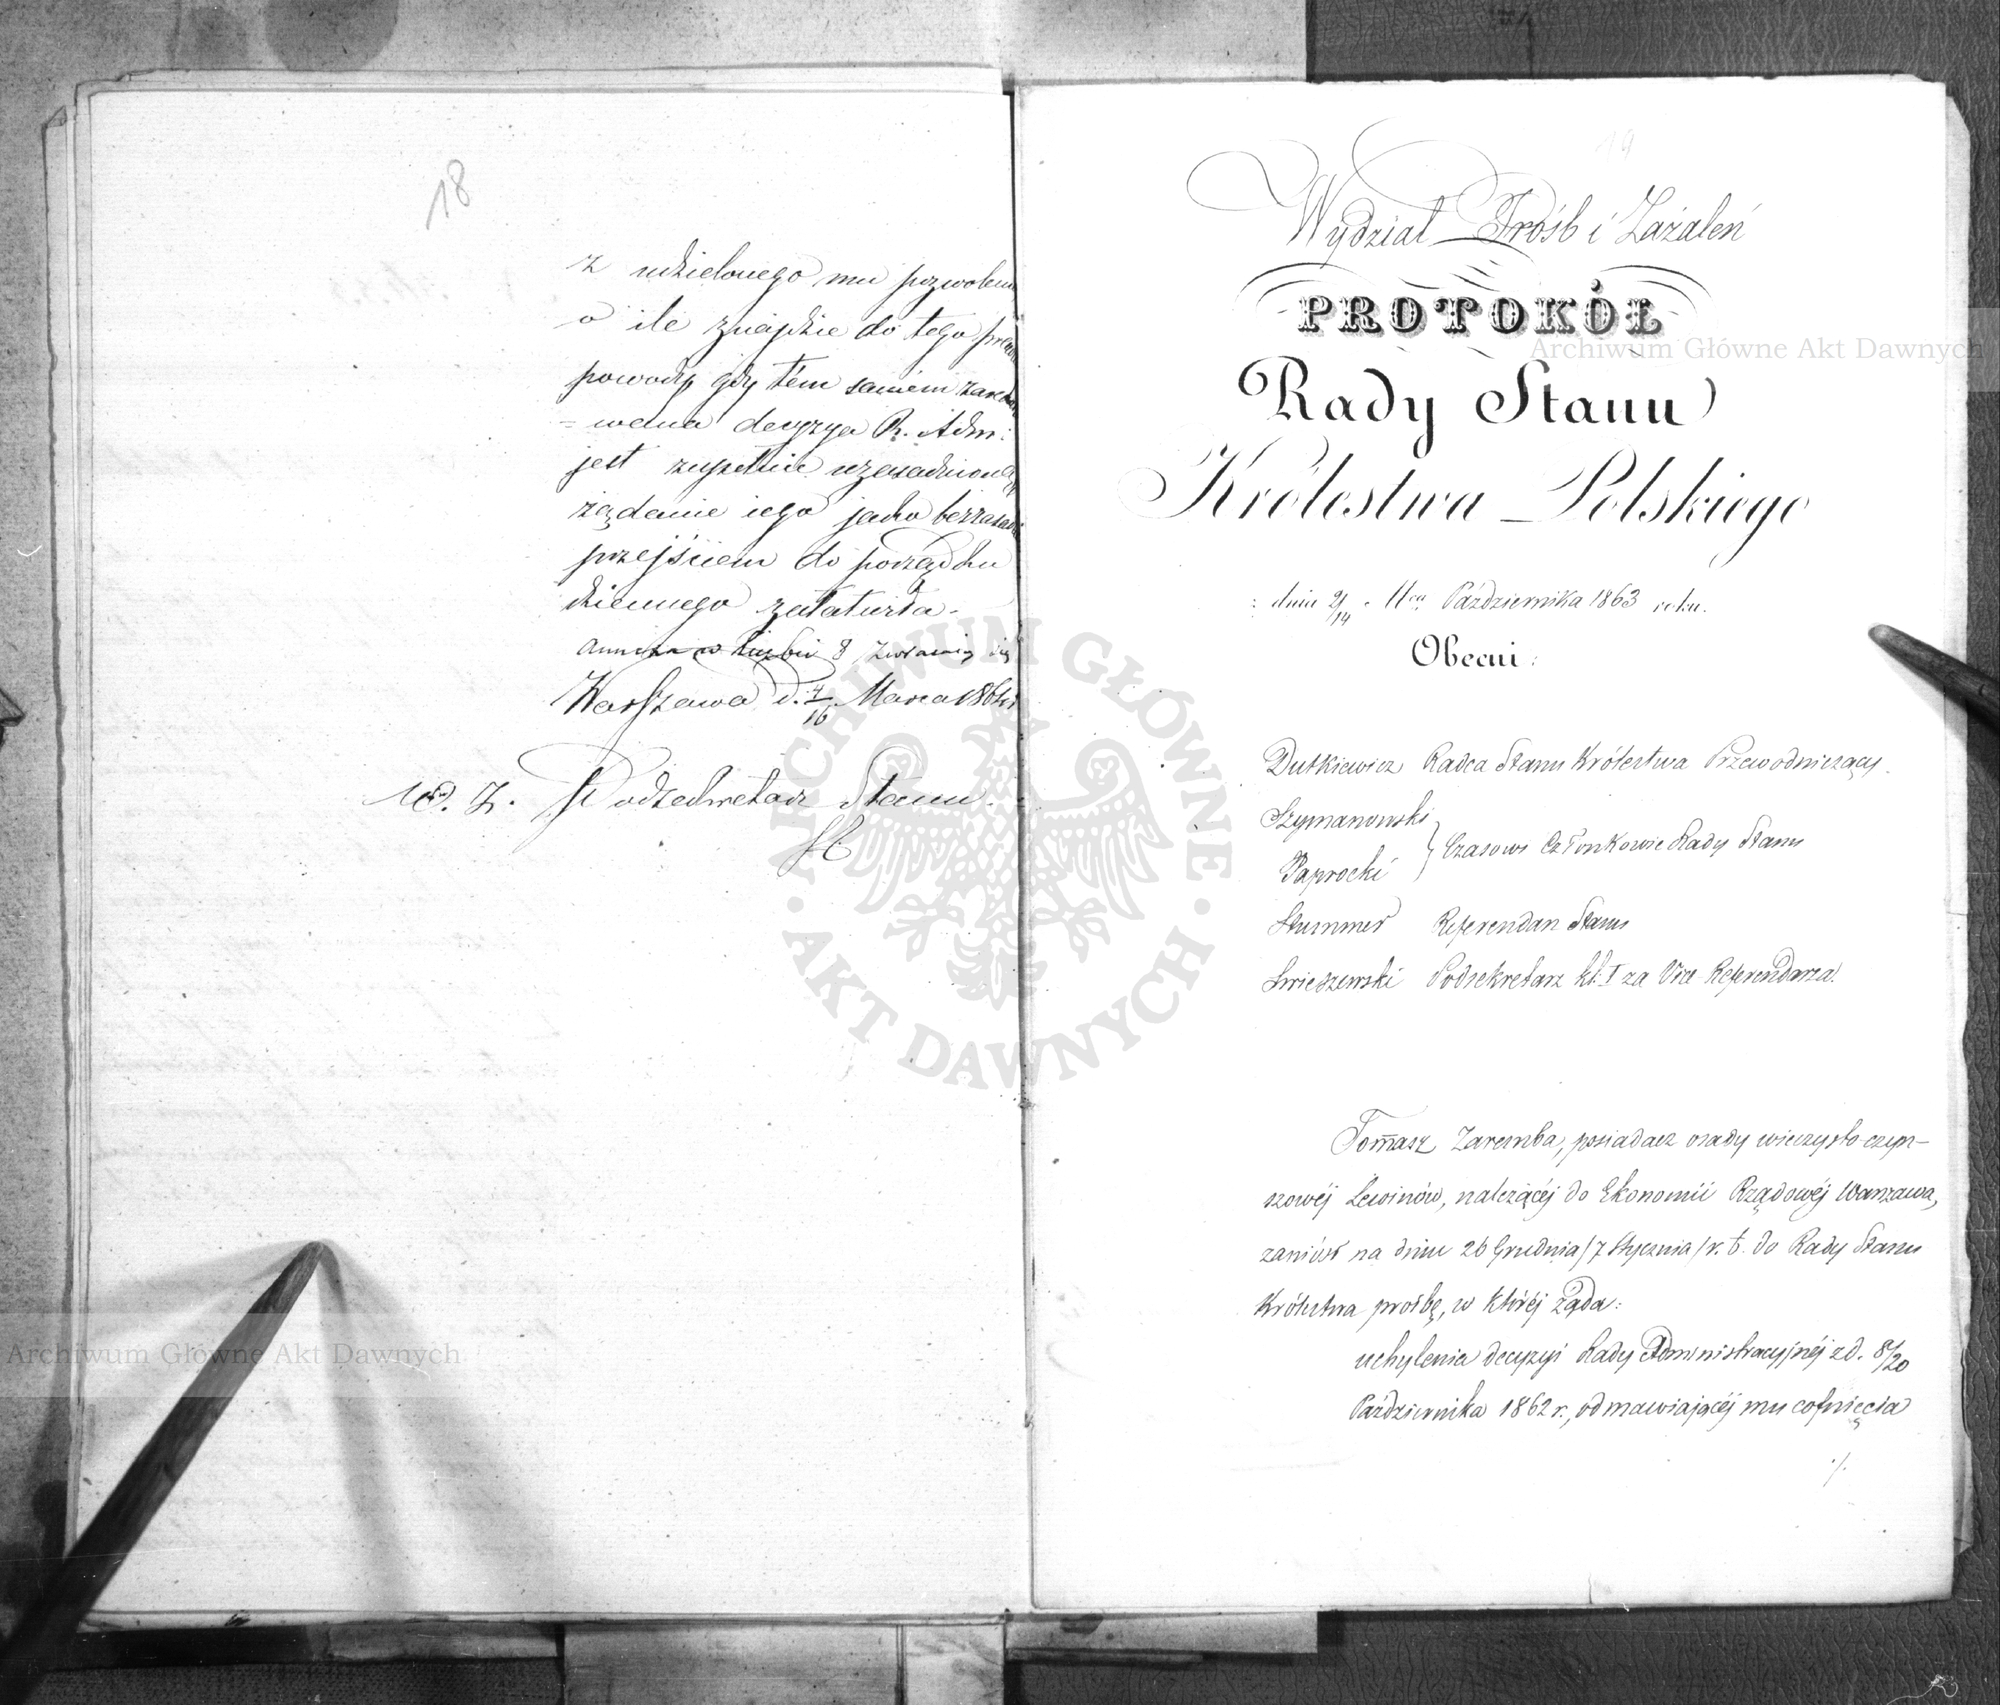 18
z udzielonego mu pozwolenia
o ile znajdzie do tego prawne
powody, gdy tém samém
wana decyzya R. Adm:
jest zupełnie uzasadnioną
żądanie iego jako bezzasadne
przejściem do porządku
dziennego załatwia.
Warszawa d. 4/16 Marca 186
W. Z. Podsekretarz Stanu.
19
Wydział Próśb i Zażaleń
PROTOKÓŁ
Rady Stanu
Królestwa Polskiego
dnia 2/14 Października 1863 roku.
Obecni:
Dutkiewicz Radca Stanu Królestwa Przewodniczący.
Szymanowski
Paprocki } Czasowi Członkowie Rady Stanu
Stummer Referendarz Stanu
Swieszewski Podsekretarz kl: I za Vice Referendarza.
Tomasz Zaremba, posiadacz osady wieczysto-czyn-
szowéj Lewinów, należącéj do Ekonomii Rządowéj Warszawa,
zaniósł na dniu 26 Grudnia/7 Stycznia/r. b. do Rady Stanu
Królestwa prośbę, w któréj żąda:
uchylenia decyzyi Rady Administracyjnéj z d. 8/20
Października 1862 r., odmawiającéj mu cofnięcia
./.
Archiwum Główne Akt Dawnych
Archiwum Główne Akt Dawnych
ARCHIWUM GŁÓWNE · AKT DAWNYCH ·